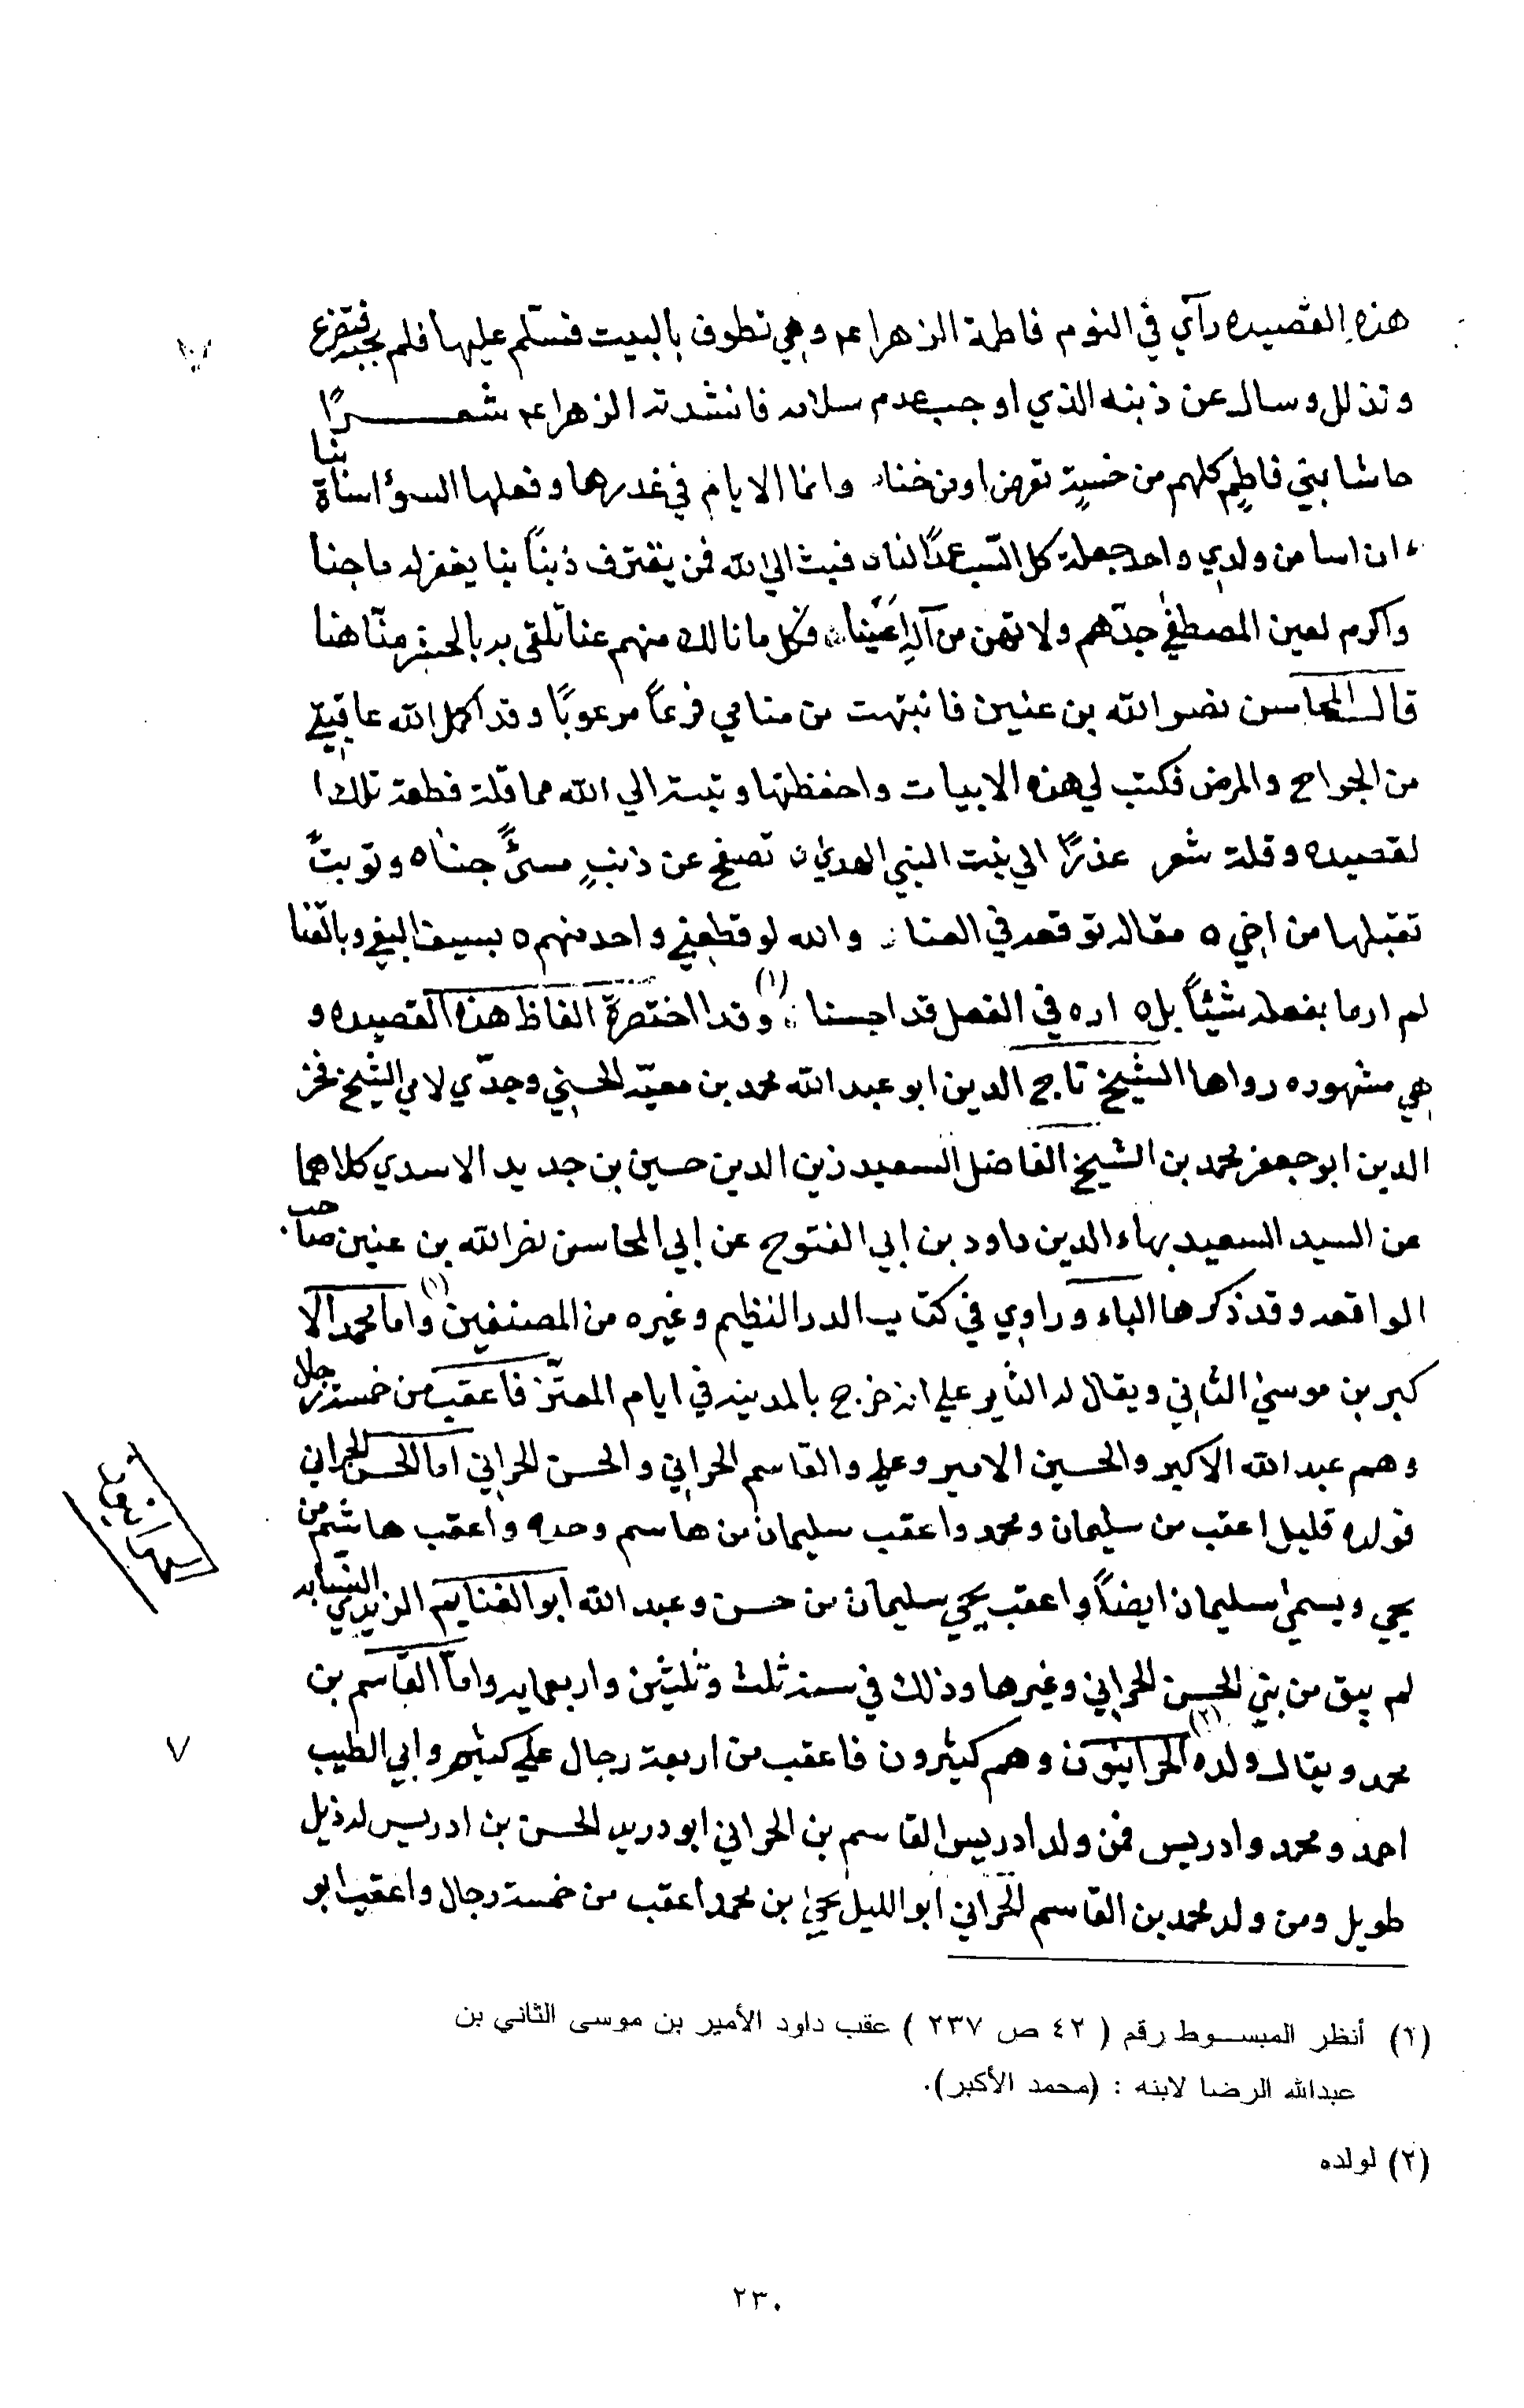 هذه القصيده رآي في النوم فاطمة الزهراء عم وهي تطوف بالبيت فسلم عليها فلم تجبه فتضرع
وتذلل وسال عن ذبنه الذي اوجب عدم سلامه فانشدته الزهراء عم شعـرًا
حاشا بني فاطم كلهم من خسية تعرض او من خنا وانما الايام في غدرها وفعلها السوء اساة بنا
ان اسا من ولدي واحد جعلة كل السب عمدًا لنا فبث الي الله فمن يقترف ذنبًا بنا يغفر له ما جنا
واكرم لعين المصطفي جدهم ولا تهن من آله اعينا فكل ما نالك منهم عنا تلقي به بالحشر منا هنا
قال المحاسن نصر الله بن عنين فانبتهت من منامي فزعًا مرعوبًا وقد اكمل الله عافيتي
من الجواح والمرض فكتب لي هذه الابيات واحفظتها وتبت الي الله مما قلة قطعة تلك ا
لقصيده وقلة شعر عذرًا الي بنت النبي الهدي تصفح عن ذنب مسئ جنا وتوبتً
تقبلها من اخي مقاله توقعه في العنا والله لو قطعني واحد منهم بسيف البغي وبالقنا
لم ار ما بفعله شيئًا بل اره في الفعل قد احسنا (١) وقد اختصرة الفاظ هذه القصيده و
هي مشهوره رواها الشيخ تاج الدين ابو عبد الله محمد بن معيّه الحسني وجدّي لامي الشيخ فخر
الدين ابو جعفر محمد بن الشيخ الفاضل السعيد زين الدين حسين بن جديد الاسدي كلاهما
عن السيد السعيد بهاء الدين داود بن ابي الفتوح عن ابي المحاسن نصر الله بن عنين صاحب
الواقعه وقد ذكرها الباء وراوي في كتاب الدر النظيم وغيره من المصنفين (١) واما محمد الا
كبر بن موسي الثاني ويقال له الثاير علي انه خرج بالمدينه في ايام المعتز فاعقب من خمسة رجلا
وهم عبد الله الاكبر والحسين الامير وعلي والقاسم الحراني والحسن الحراني اما الحسن الحراني
فولده قليل اعقب من سليمان ومحمد واعقب سليمان من هاسم وحده واعقب هاشم من
يحي ويسمي سليمان ايضًا واعقب يحي سليمان من حسن وعبد الله ابو الغنايم الزيدي النسابه
لم يبق من بني الحسن الحراني وغيرها وذلك في سنة ثلث وثلثين واربعمايه واما القاسم بن
محمد ويقال ولده (٢) الحرانيون وهم كثيرون فاعقب من اربعة رجال علي كثير وابي الطيب
احمد ومحمد وادريس فمن ولد ادريس القاسم بن الحراني ابو دريد الحسن بن ادريس له ذيل
طويل ومن ولد محمد بن القاسم الحراني ابو الليل يحي بن محمد اعقب من خمسة رجال واعقب ابو
٧
(١) أنظر المبسوط رقم ( ٤٢ ص ٢٣٧ ) عقب داود الأمير بن موسى الثاني بن
عبدالله الرضا لابنه : (محمد الأكبر).
(٢) لولده
٢٣٠